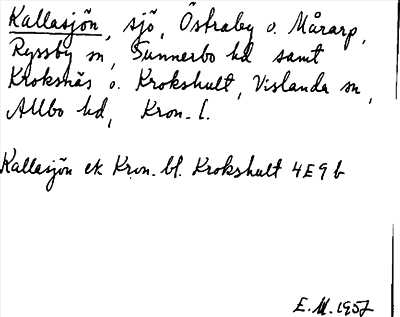 Kallasjön, sjö, Östraby o. Mårarp,
Ryssby sn, Sunnerbo hd samt
Kroksnäs o. Krokshult, Vislanda sn,
Allbo hd, Kron. l.
Kallasjön ek Kron. bl. Krokshult 4E9b
E.M. 1957